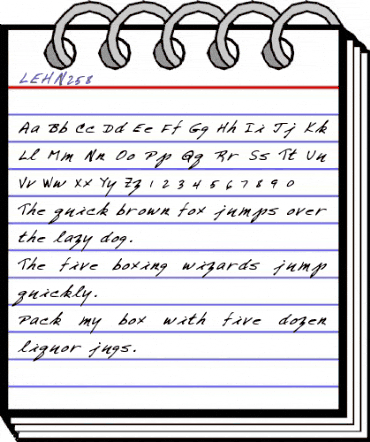 LEHN258
Aa Bb Cc Dd Ee Ff Gg Hh Ii Jj Kk
Ll Mm Nn Oo Pp Qq Rr Ss Tt Uu
Vv Ww Xx Yy Zz 1 2 3 4 5 6 7 8 9 0
The quick brown fox jumps over
the lazy dog.
The five boxing wizards jump
quickly.
Pack my box with five dozen
liquor jugs.